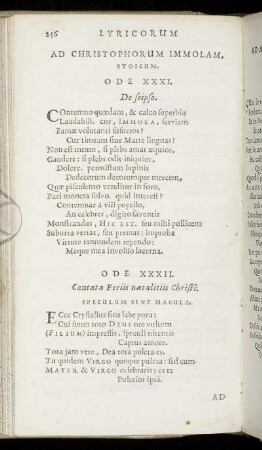 256 LYRICORUM
AD CHRISTOPHORUM IMMOLAM,
STOICUM.
ODE XXXI.
De seipso.
COntemno quædam, & calco superbiâ
Laudabili. cur, IMMOLA, serviam
Famæ volutanti susurros?
Cur timeam sine Marte linguas?
Non est meum, si plebs amat æquior,
Gaudere: si plebs odit iniquior,
Dolere. permistam lupinis
Dedecorum decorumque mercem,
Quæ pisculento venditur in foro,
Pari moneta solvo. quid interest?
Contemnar à vili popello,
An celebrer, digito faventis
Monstrandus, HIC EST. seu mihi pollicem
Suburra vertat, seu premat; improba
Virtute tantumdem rependo:
Meque mea involvo lacerna.
ODE XXXII.
Cantata Feriis natalitiis Christi.
SPECULUM SINE MACULA.
ECce Crystallus sine labe pura:
Cui suum toto DEUS ore vultum
(FILIUM) impressit, speculi nitentis
Captus amore.
Tota jam vere, Dea tota pulcra es.
Tu quidem VIRGO quoque pulcra: sed cum
MATER & VIRGO celebraris; esto
Pulcrior ipsâ.
AD